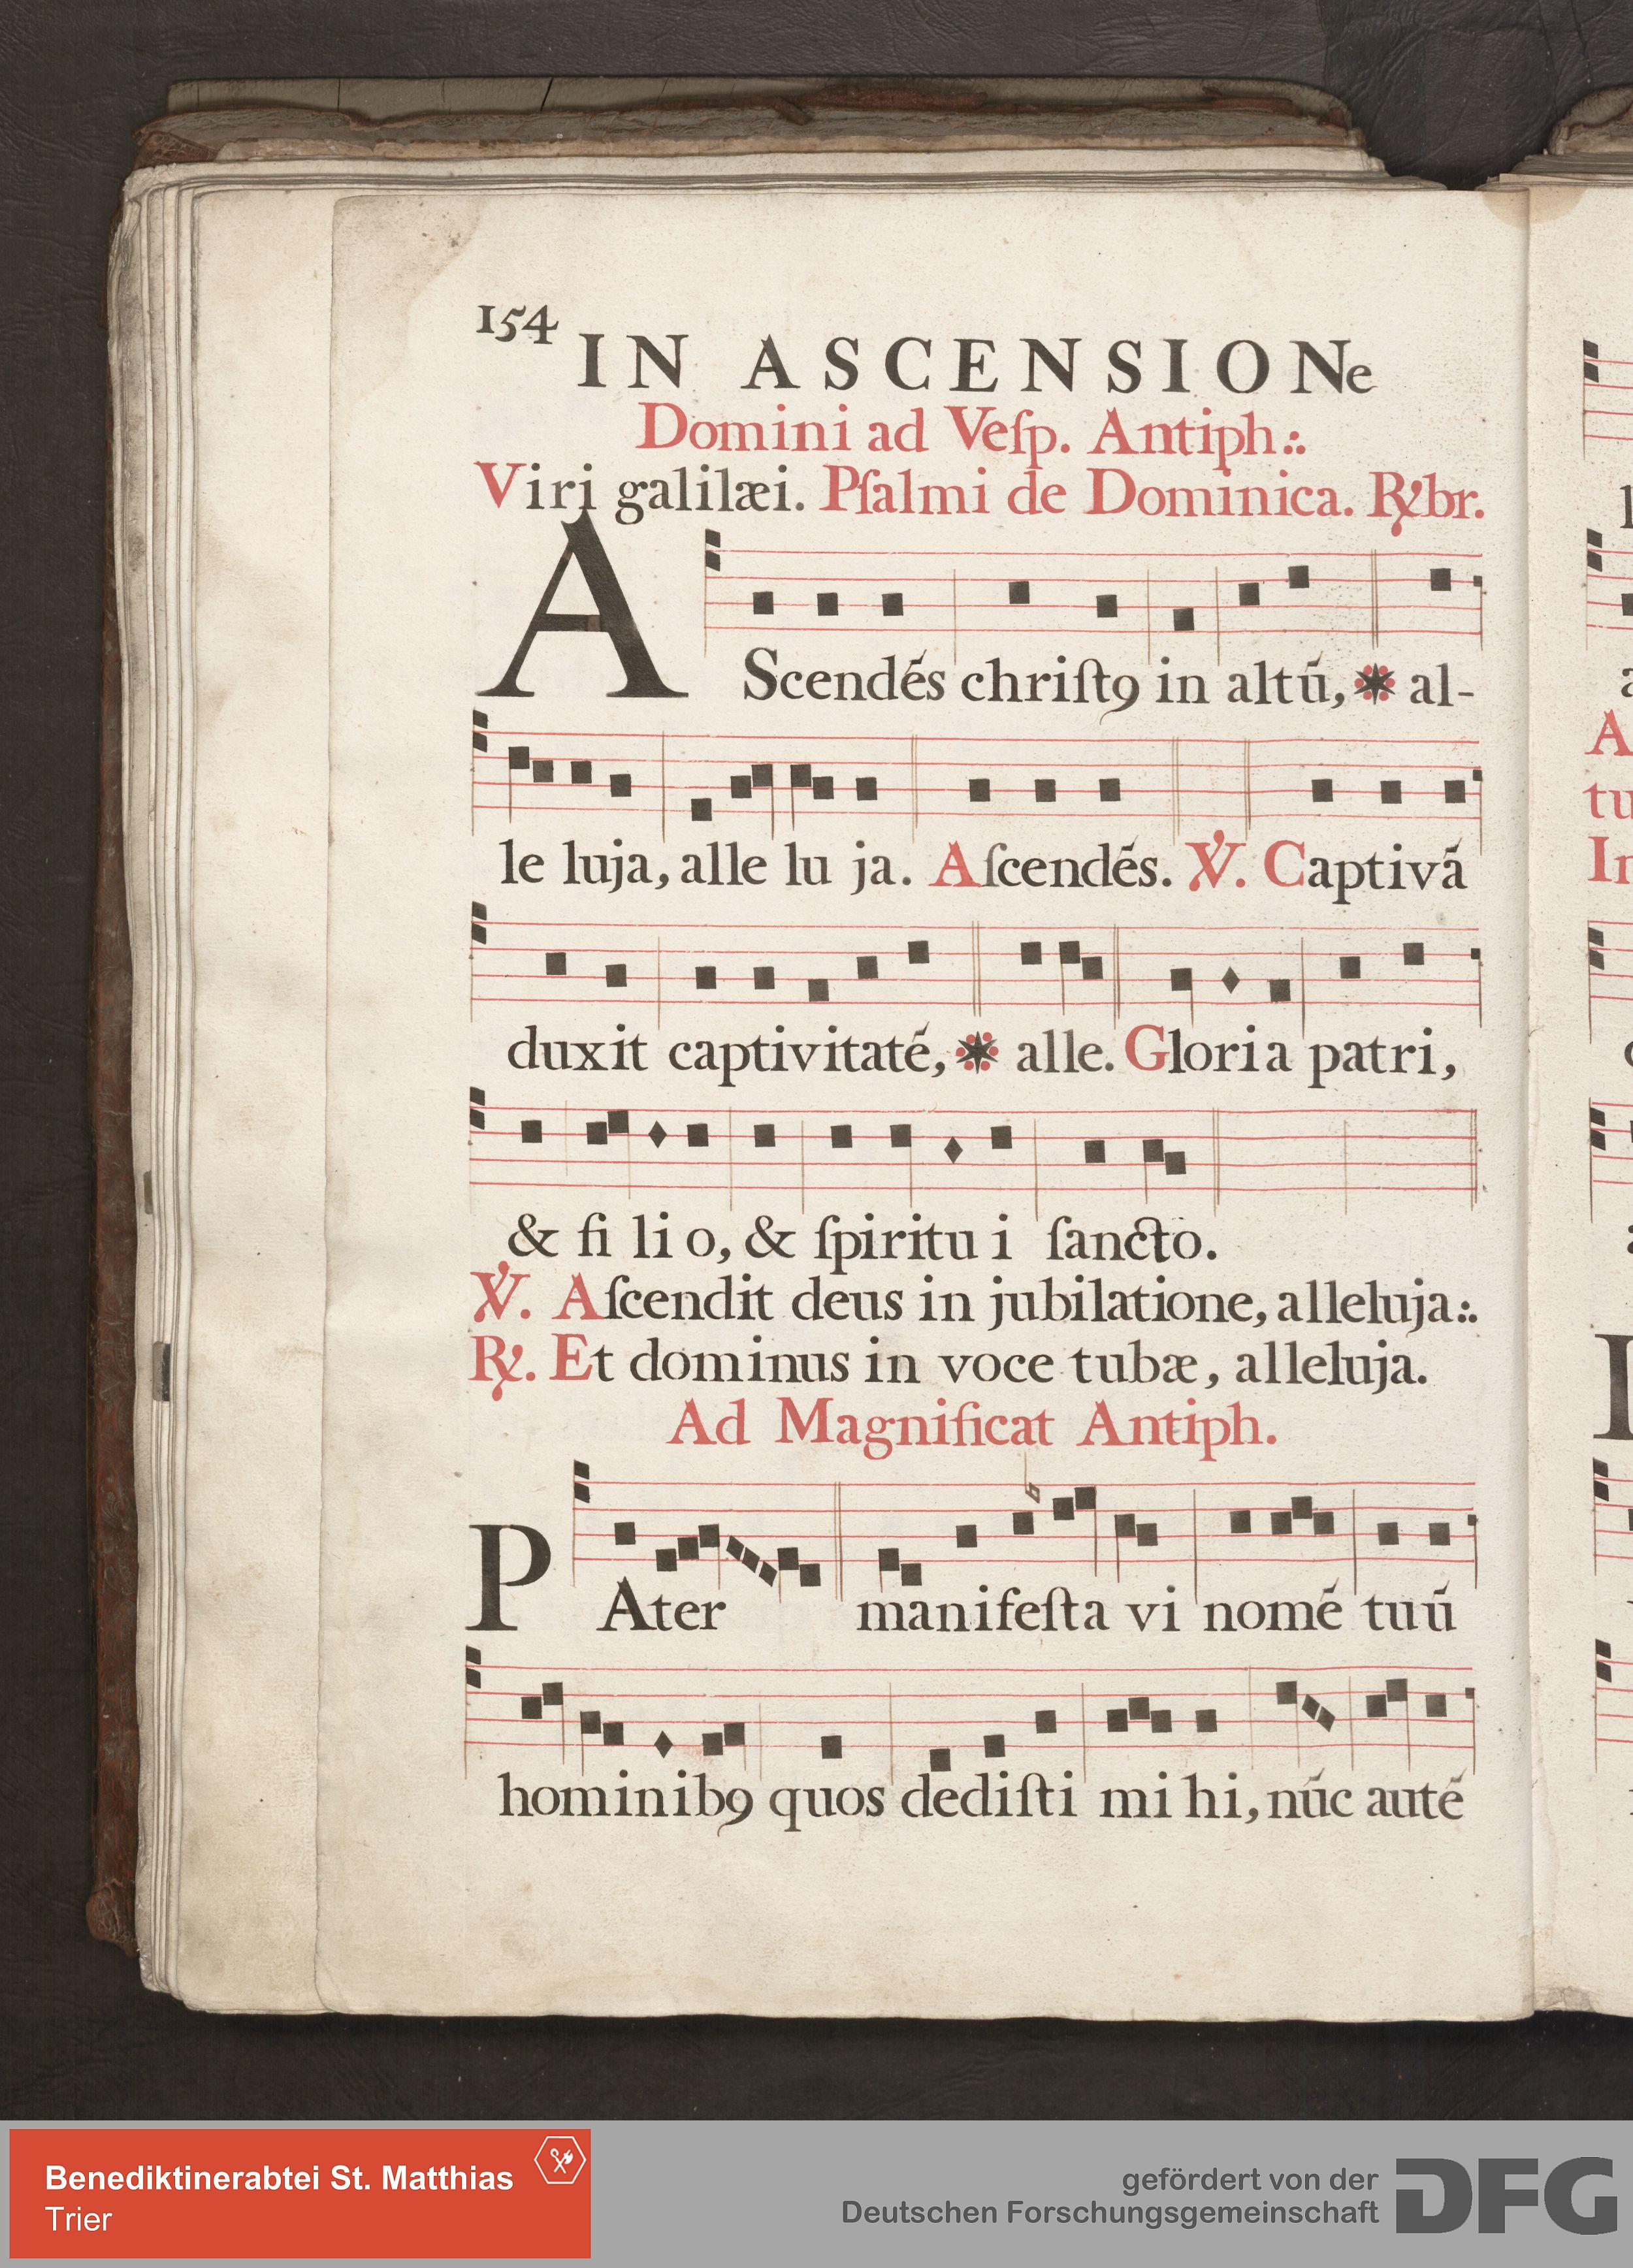 154
IN ASCENSIONe
Domini ad Veſp. Antiph.
Viri galilæi. Pſalmi de Dominica. ℟br.
AScendẽs chriſtꝰ in altũ, * al-
le luja, alle lu ja. Aſcendẽs. ℣. Captivã
duxit captivitatẽ, * alle. Gloria patri,
& fi li o, & ſpiritu i ſancto.
℣. Aſcendit deus in jubilatione, alleluja.
℟. Et dominus in voce tubæ, alleluja.
Ad Magnificat Antiph.
PAter manifeſta vi nomẽ tuũ
hominibꝰ quos dediſti mi hi, nũc autẽ
Benediktinerabtei St. Matthias
Trier
gefördert von der
Deutschen Forschungsgemeinschaft
DFG